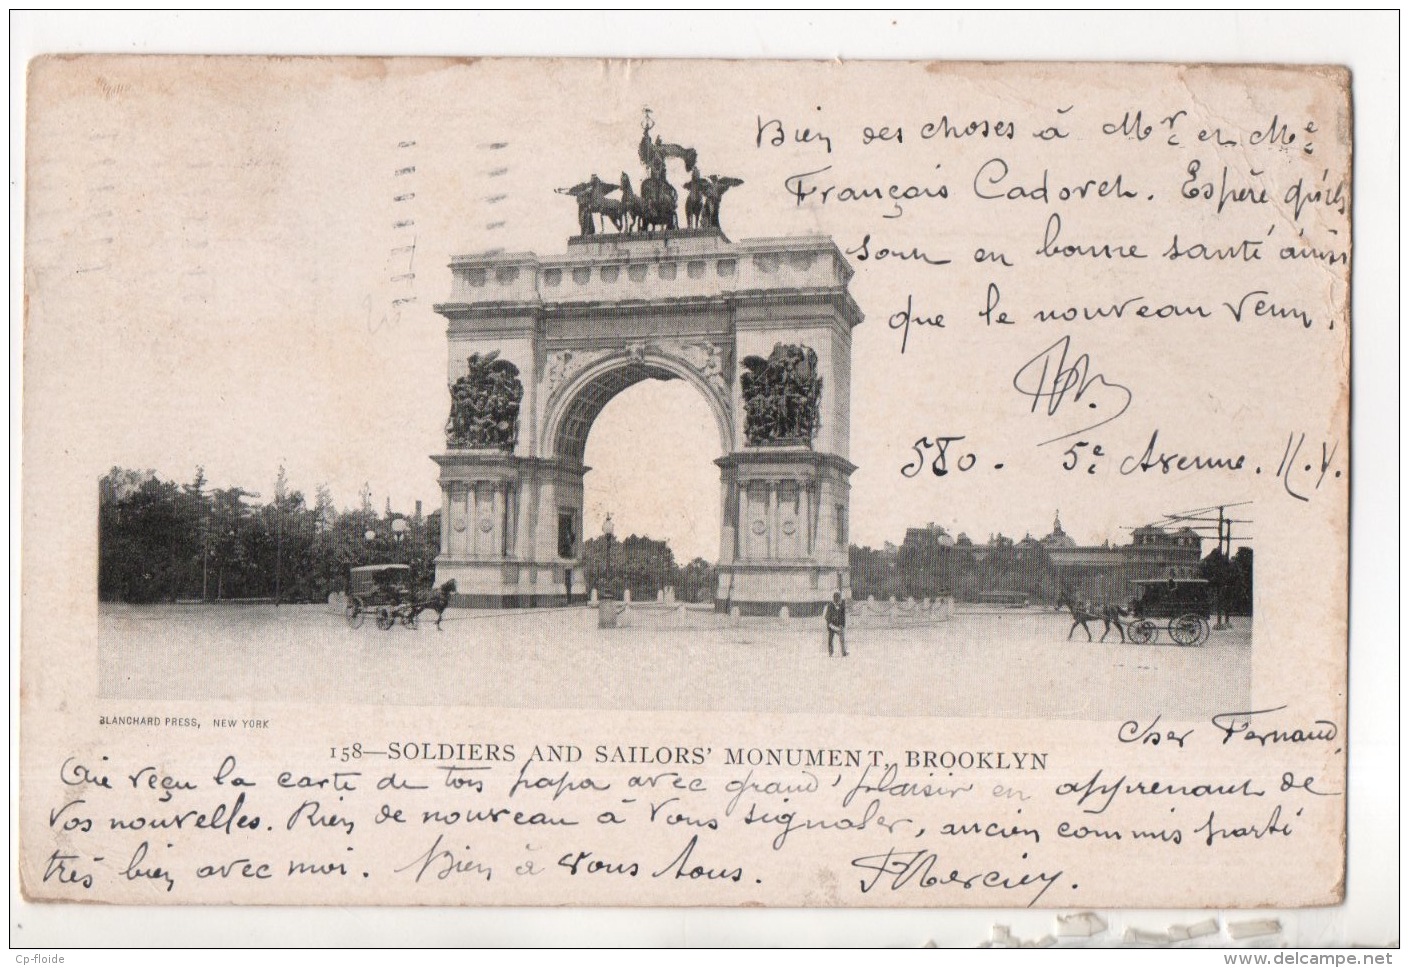 Bien des choses à Mr et Me
François Cadoret. Espère qu'ils
sont en bonne santé ainsi
que le nouveau venu.
580. 5e Avenue. N.Y.
BLANCHARD PRESS, NEW YORK
158—SOLDIERS AND SAILORS' MONUMENT, BROOKLYN
Cher Fernand,
Ai reçu la carte de ton papa avec grand plaisir en apprenant de
vos nouvelles. Rien de nouveau à vous signaler, ancien commis parti
très bien avec moi. Bien à vous tous. Mercier.
Cp-floide
www.delcampe.net